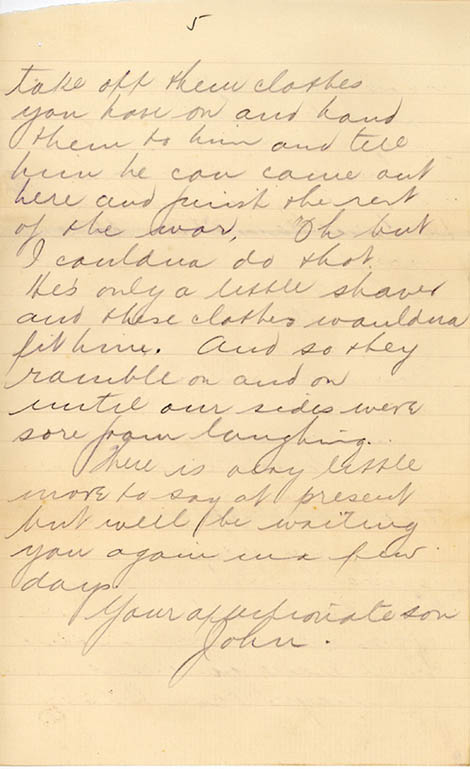 5
take off them clothes
you have on and hand
them to him and tell
him he can come out
here and finish the rest
of the war. Oh but
I couldna do that
He's only a little shaver
and these clothes wouldna
fit him. And so they
ramble on and on
until our sides were
sore from laughing.
There is very little
more to say at present
but will be writing
you again in a few
days.
Your affectionate son
John.